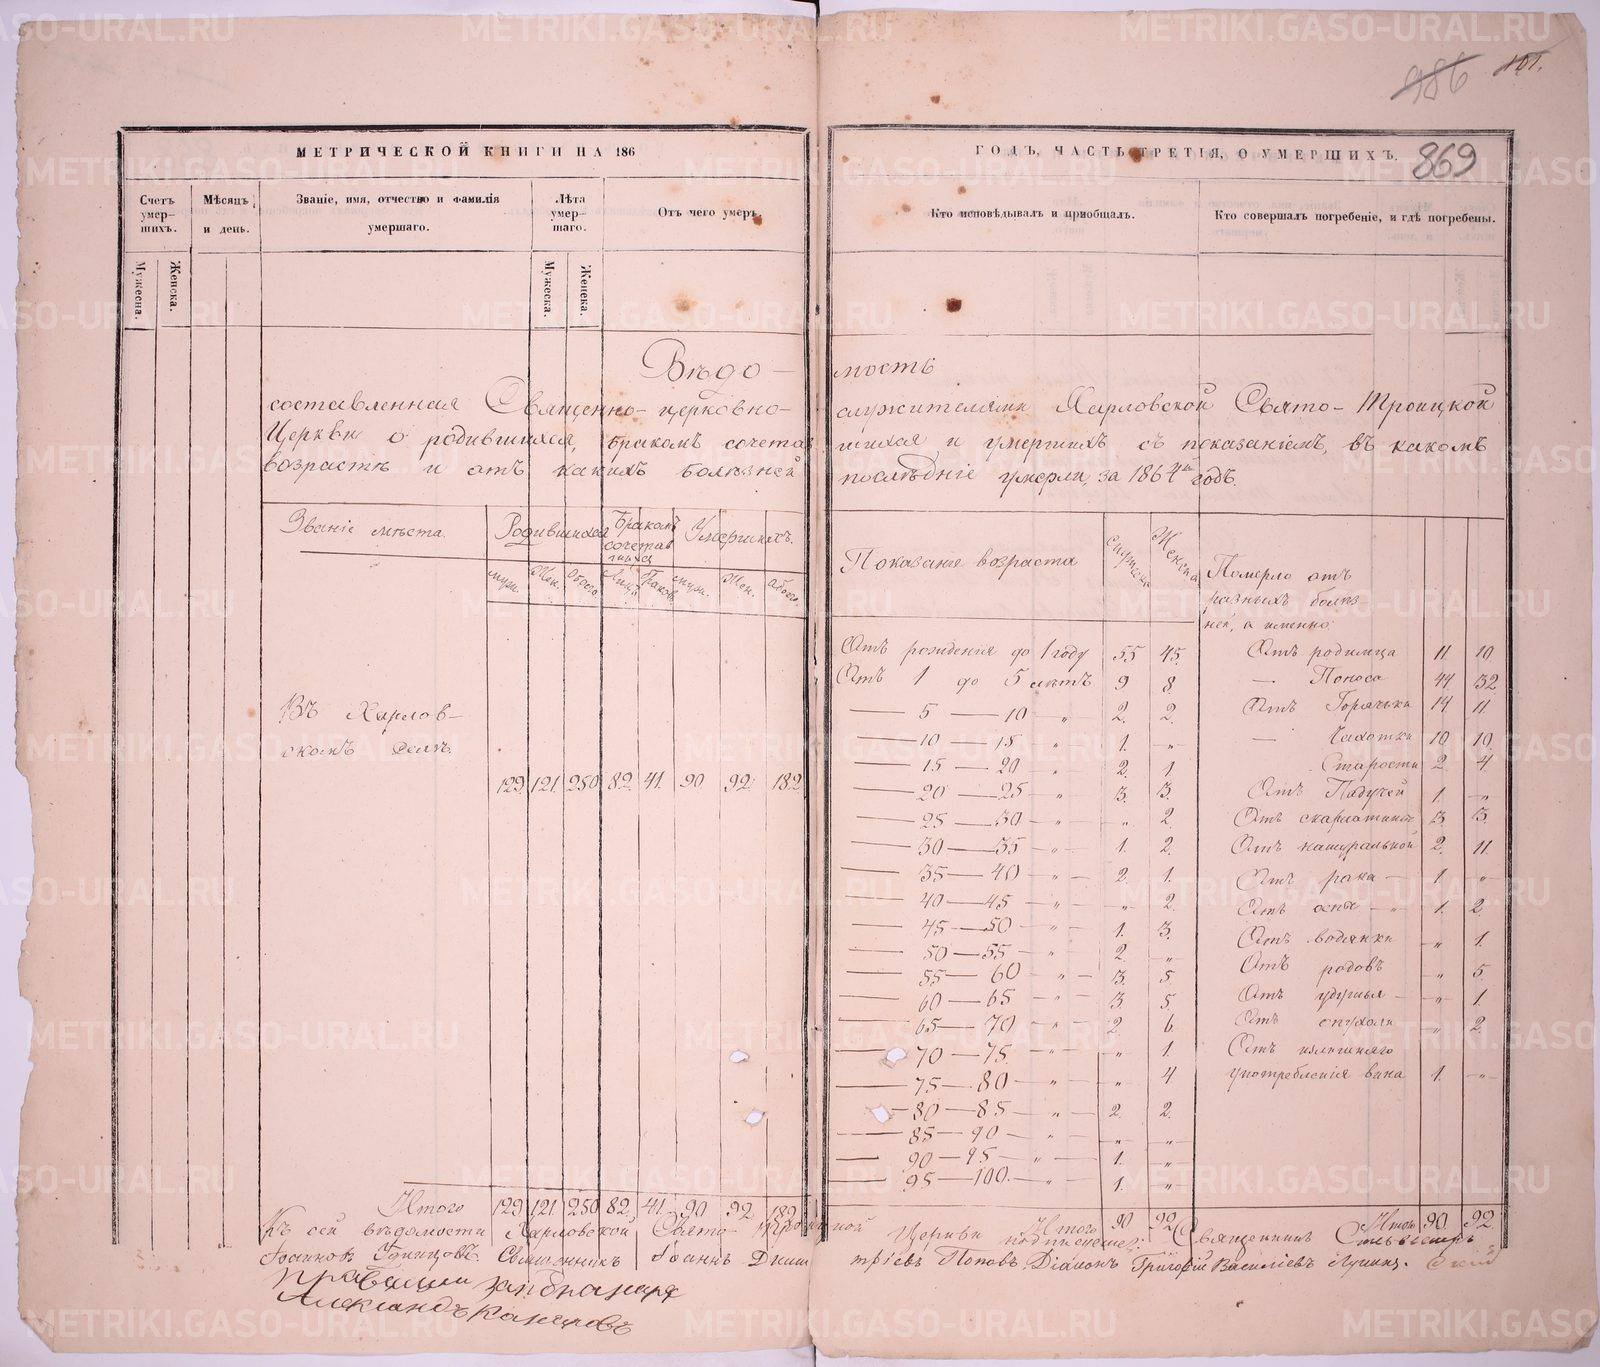 986 101.
МЕТРИЧЕСКОЙ КНИГИ НА 186 ГОДЪ, ЧАСТЬ ТРЕТІЯ, О УМЕРШИХЪ. 869
Счетъ умер-шихъ. Мѣсяцъ и день. Званіе, имя, отчество и фамилія умершаго. Лѣта умер-шаго. Отъ чего умеръ. Кто исповѣдывалъ и пріобщалъ. Кто совершалъ погребеніе, и гдѣ погребены.
Мужеска. Женска. Мужеска. Женска.
Вѣдо- мость
составленная Священно-церковно- служителями Харловской Свято-Троицкой
Церкви о родившихся, бракомъ сочетав шихся и умершихъ съ показаніемъ, въ какомъ
возрастѣ и отъ какихъ болѣзней послѣдніе умерли, за 1864й годъ.
Званіе мѣста. Родившихся Бракомъ сочетав шихся Умершихъ.
муж. Жен. Обоего Лицъ Браков. муж. Жен. обоего.
Въ Харлов-
скомъ селѣ. 129. 121. 250. 82. 41. 90. 92. 182.
Итого 129. 121. 250. 82. 41. 90. 92. 182.
Показаніе возраста мужеска Женска
Отъ рожденія до 1 году 55 45.
Отъ 1 до 5 лѣтъ 9 8.
— 5 — 10 — " 2. 2.
— 10 — 15 " — 1. "
— 15 — 20 " 2. 1
— 20 — 25 — " 3. 3.
— 25 — 30 — " — " 2.
— 30 — 35 — " — 1. 2.
— 35 — 40 — " — 2. 1.
— 40 — 45 — " — " 2.
— 45 — 50 — " — 1. 3.
— 50 — 55 — " 2. "
— 55 — 60 " — 3. 5
— 60 — 65 — " — 3 5
— 65 — 70 — " — 2 6.
— 70 — 75 " — " 1.
— 75 — 80 — " — " 4
— 80 — 85 — " — 2. 2.
— 85 — 90 — " — " "
— 90 — 95 — " — 1. "
— 95 — 100. — 1. "
Итого 90 92.
Померло отъ
разныхъ болѣз
ней, а именно:
Отъ родимца 11 10.
— Поноса 44 32
Отъ Горячьки 14 11
— Чахотки 10 10.
Старости 2 4.
Отъ Падучей 1. — "
Отъ скарлатины 3 3.
Отъ натуральной 2. 11.
Отъ рака — 1. — "
Отъ оспы — " 1. 2.
Отъ водянки — " 1.
Отъ родовъ " 5.
Отъ удушья — " 1.
Отъ опухоли " 2.
Отъ излишняго
употребленія вина 1. — "
Итого 90. 92.
Къ сей вѣдомости Харловской Свято-Троицкой Церкви подписуемся: Священникъ
Священникъ Іоаннъ Дими тріевъ Поповъ, Діаконъ Григорій Василіевъ
Александръ